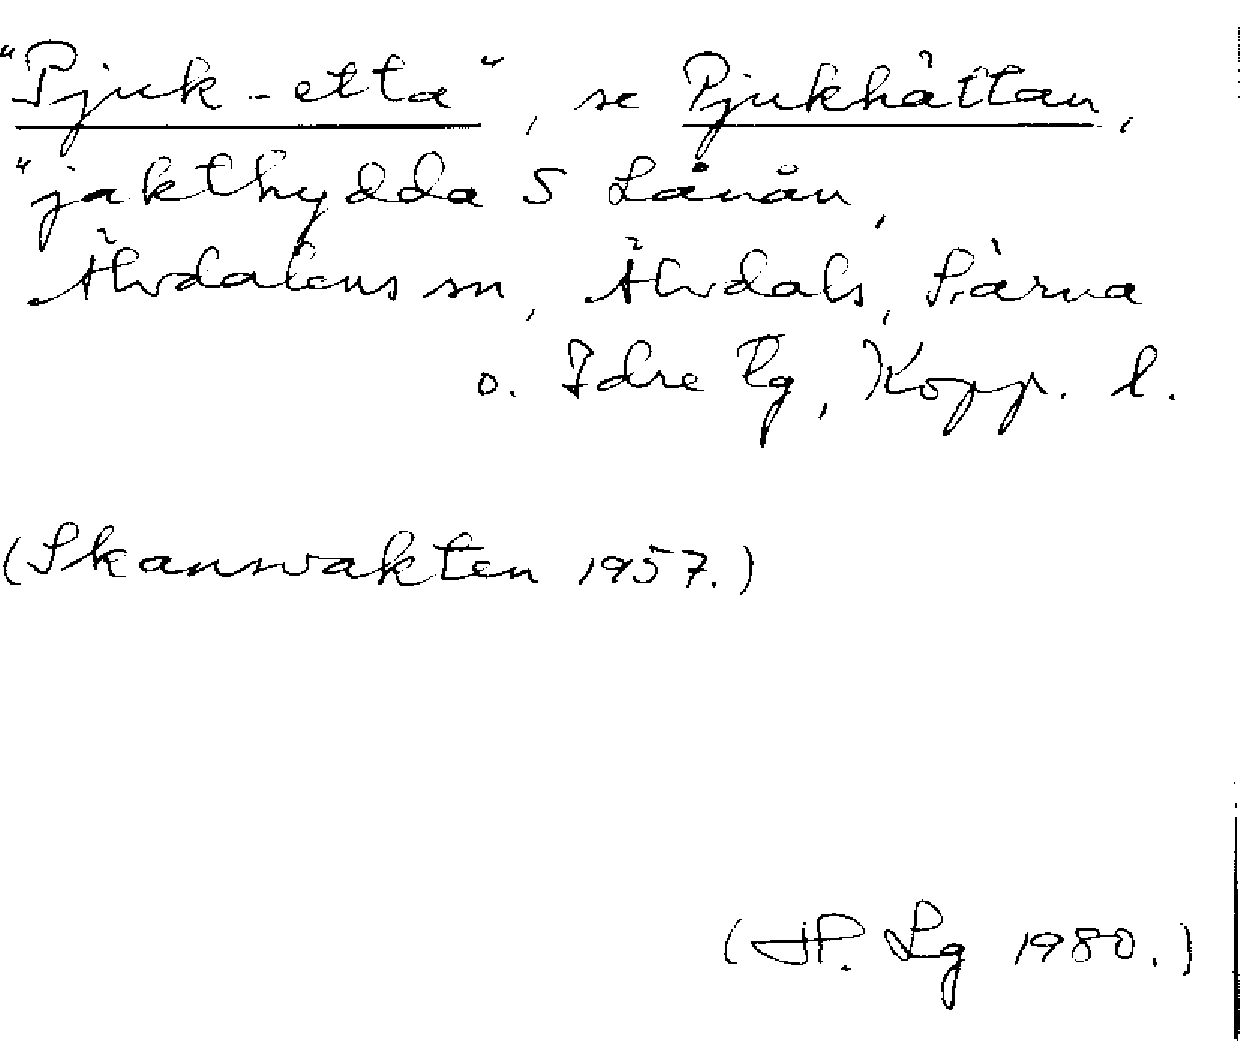 "Pjuk-etta", se Pjukhättan,
"jakthydda S Lånån,
Älvdalens sn, Älvdals, Särna
o. Idre tg, Kopp. l.
(Skansvakten 1957.)
(JP. Lg 1980.)